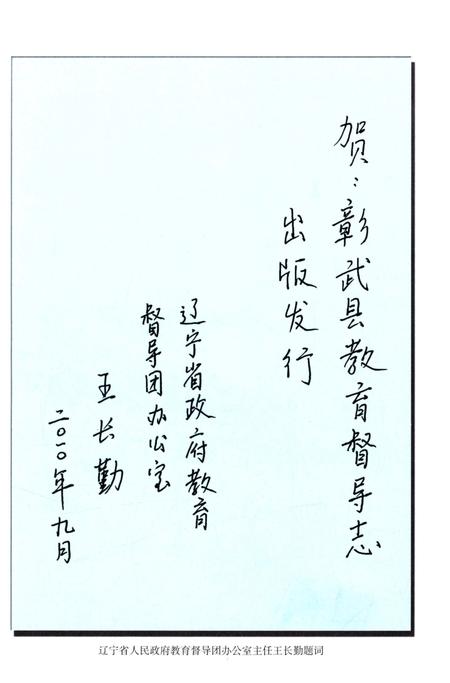 贺：彰武县教育督导志
出版发行
辽宁省政府教育
督导团办公室
王长勤
二〇一〇年九月
辽宁省人民政府教育督导团办公室主任王长勤题词